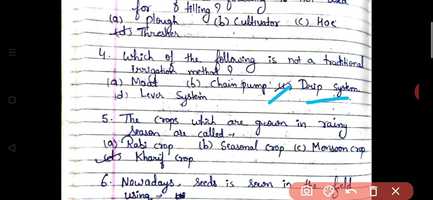 for & tilling?
(a) Plough (b) Cultivator (c) Hoe
(d) Thresher
4. Which of the following is not a traditional
irrigation method?
(a) Moat (b) Chain pump (c) Drip System
(d) Lever System
5. The crops which are grown in rainy
season are called :-
(a) Rabi crop (b) Seasonal crop (c) Monsoon crop
(d) Kharif crop
6. Nowadays, seeds is sown in the field
using :-